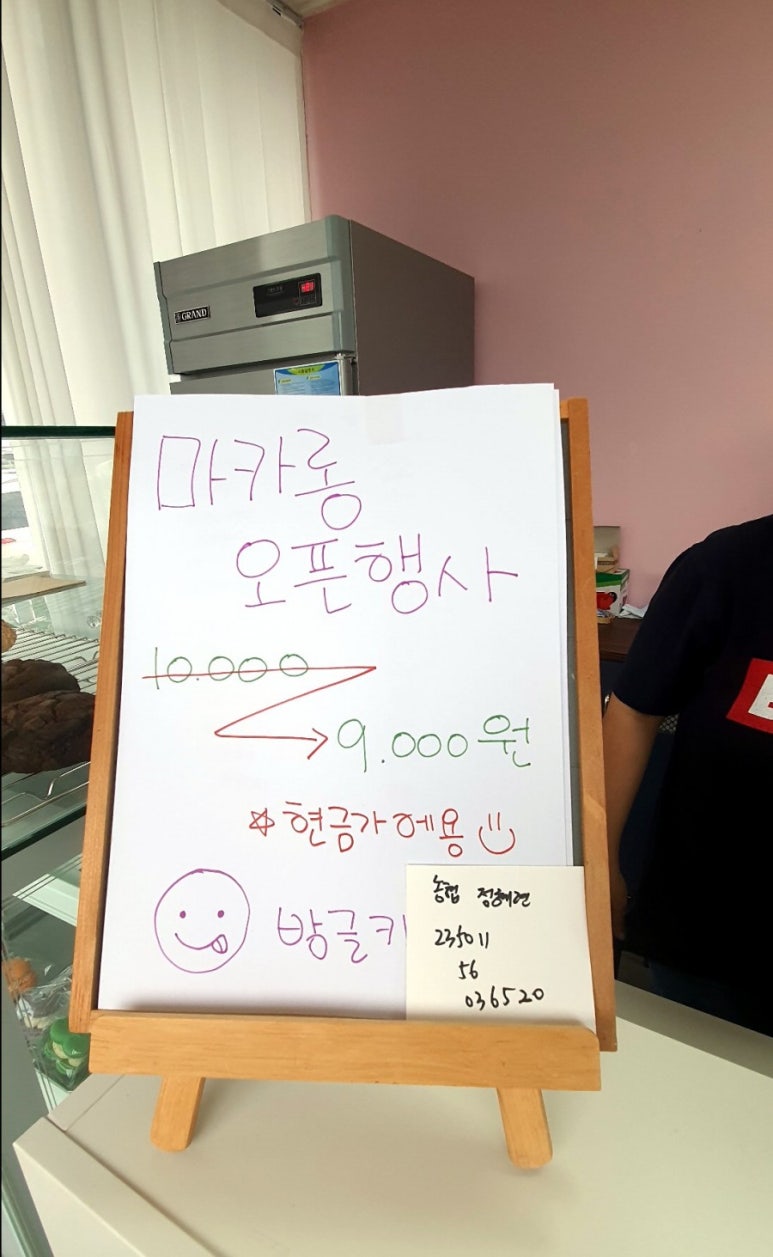 GRAND
마카롱
오픈행사
10.000
9.000원
현금가에용
방글
농협
235011
56
036520